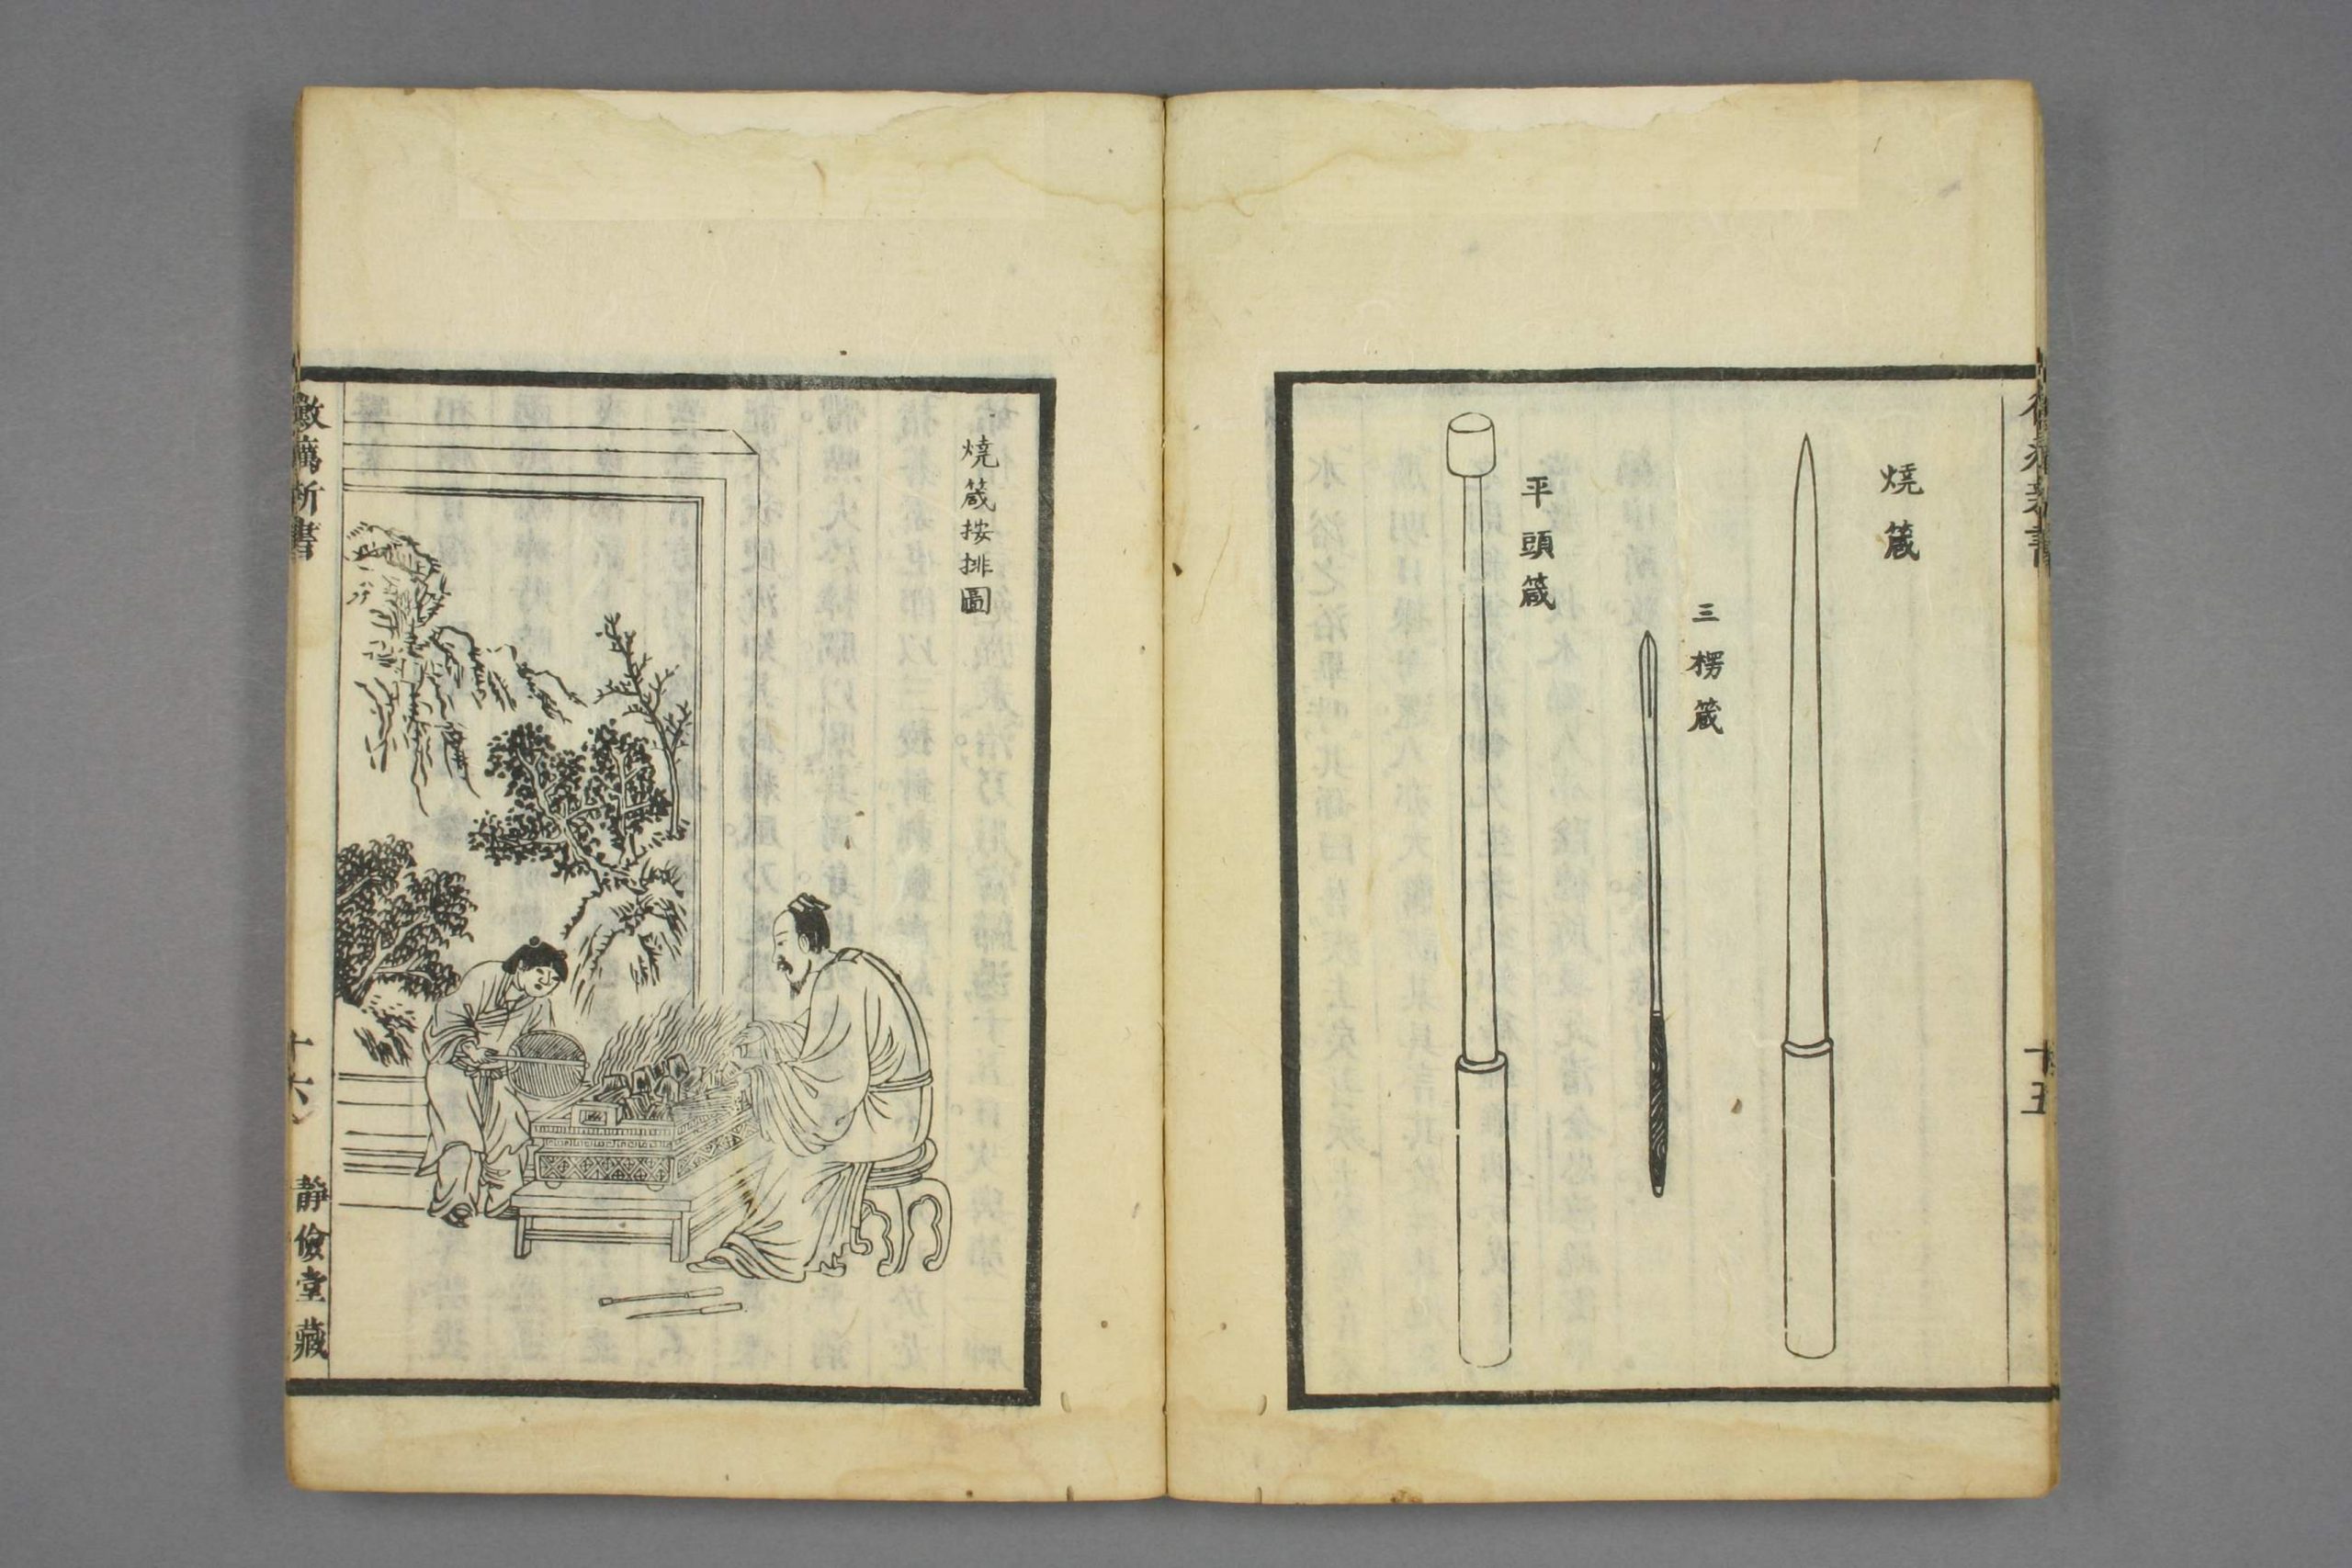 燒箴
三楞箴
平頭箴
十五
燒箴按排圖
黴癘新書
十六
靜儉堂藏